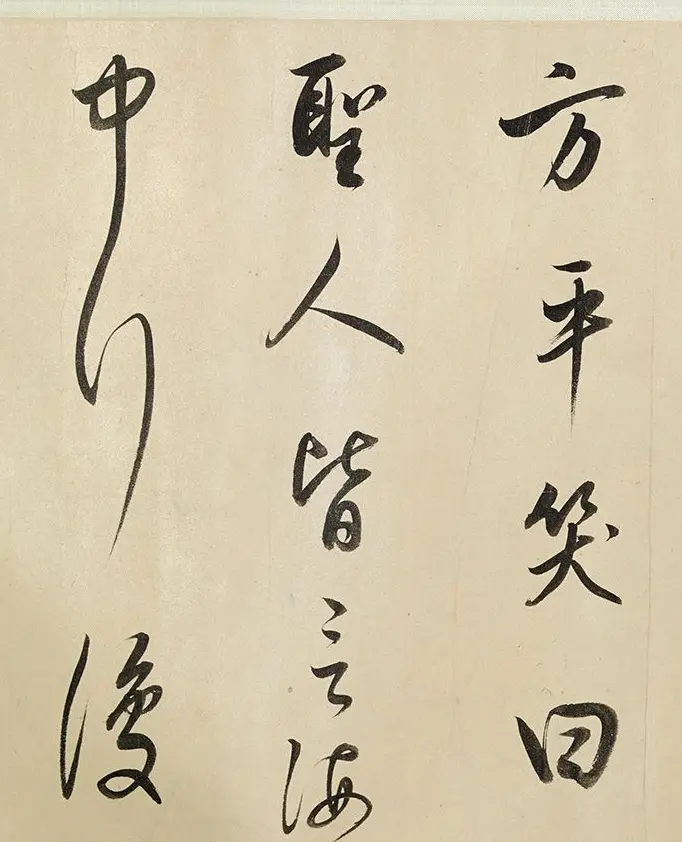 方平笑曰
聖人皆言海
中行復